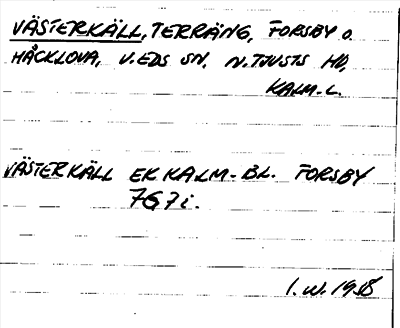 VÄSTERKÄLL, TERRÄNG, FORSBY O.
HÅCKLOVA, V.EDS SN, N.TJUSTS HD,
KALM.L.
VÄSTERKÄLL EK KALM-BL. FORSBY
7G7i.
I.W. 1958